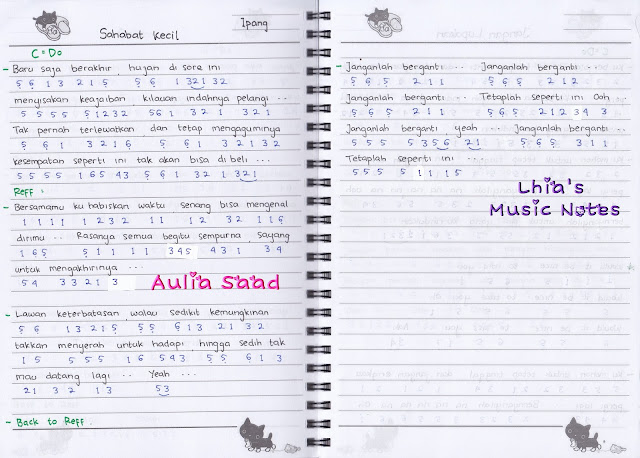 Sahabat Kecil
Ipang
C = Do
- Baru saja berakhir, hujan di sore ini
5 6 1 3 2 1 5 5 6 1 3 2 1 3 2
menyisakan keajaiban, kilauan indahnya pelangi ...
5 5 5 5 5 1 2 3 2 5 6 1 3 2 1 3 2 1
Tak pernah terlewatkan dan tetap mengaguminya
5 6 1 3 2 1 6 5 6 1 3 2 1 3 2
kesempatan seperti ini tak akan bisa di beli ...
5 5 5 5 1 6 5 4 3 5 6 1 3 2 1 3 2 1
Reff :
- Bersamamu ku habiskan waktu senang bisa mengenal
1 1 1 1 1 2 3 2 1 1 1 2 3 2 1 1 6
dirimu ... Rasanya semua begitu sempurna, sayang
1 6 5 5 1 1 1 1 3 4 5 4 3 1 3 4
untuk mengakhirinya ...
5 4 3 3 2 1 3
Aulia Saad
- Lawan keterbatasan walau sedikit kemungkinan
5 6 1 3 2 1 5 5 5 6 1 3 2 1 3 2
takkan menyerah untuk hadapi, hingga sedih tak
1 5 5 5 5 1 6 5 4 3 5 5 6 1 3
mau datang lagi ... Yeah ...
2 1 3 2 1 3 5 3
- Back to Reff.
- Janganlah berganti ... Janganlah berganti ...
5 6 5 2 1 1 5 6 5 2 1 2
Janganlah berganti ... Tetaplah seperti ini Ooh ...
5 6 5 2 1 1 5 6 5 2 1 2 3 4 3
Janganlah berganti yeah ... Janganlah berganti ...
5 5 5 5 3 5 6 2 1 5 6 5 3 1 1
Tetaplah seperti ini ...
5 5 5 5 1 1 1 5
Lhia's
Music Notes